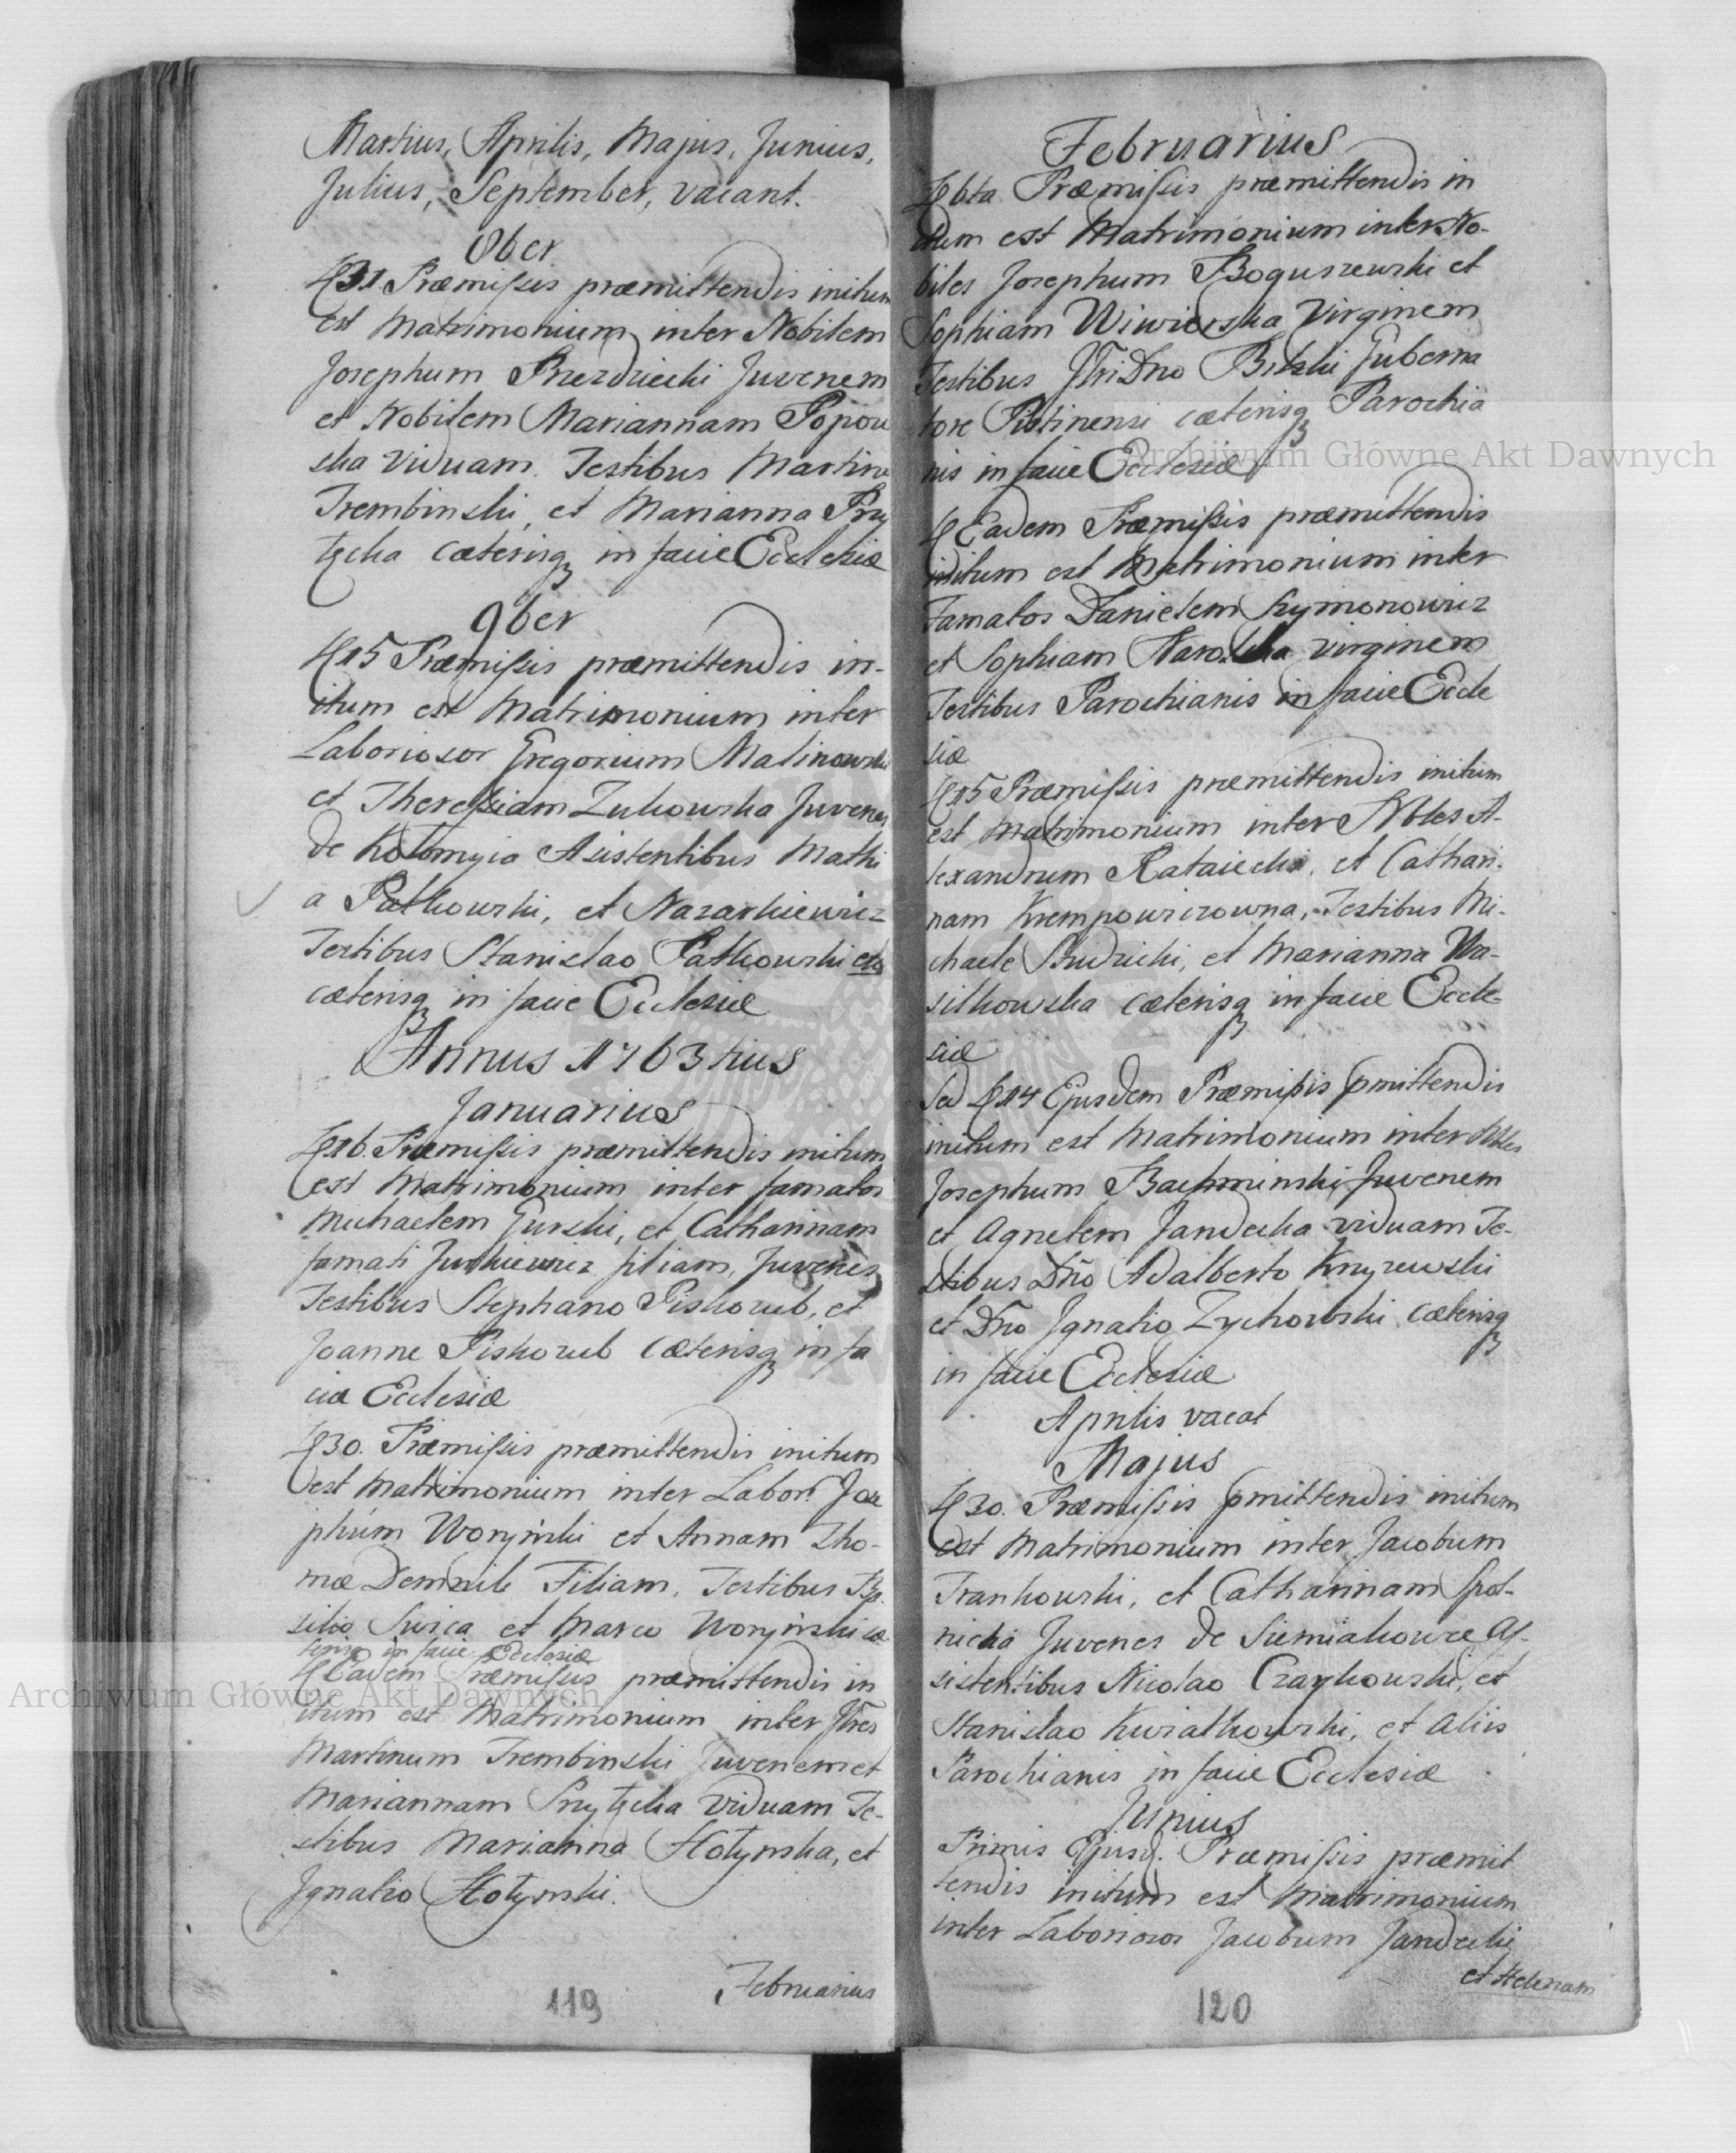 Martius, Aprilis, Majus, Junius,
Julius, September, vacant.
8ber
31 Præmissis præmittendis initum
est Matrimonium inter Nobilem
Josephum Przezdziecki Juvenem
et Nobilem Mariannam Popow
ska Viduam. Testibus Martino
Trembinski, et Marianna Przy
tycka cæterisq in facie Ecclesiæ
9ber
15 Præmissis præmittendis in-
itum est Matrimonium inter
Laboriosos Gregorium Malinowski
et Theressiam Zukowska Juvenes
de Kolomyia Asistentibus Mathi
a Patkowski, et Nazarkiewicz
Testibus Stanislao Patkowski
cæterisq in facie Ecclesiæ
Annus 1763tius
Januarius
16. Præmissis præmittendis initum
est Matrimonium inter famatos
Michaelem Gurski, et Catharinam
famati Jurkiewicz filiam, Juvenes
Testibus Stephano Piskozub, et
Joanne Piskozub cæterisq in fa
ciæ Ecclesiæ
30. Præmissis præmittendis initum
est Matrimonium inter Labor. Jose
phum Worynski et Annam Tho-
mæ Filiam. Testibus Ba
silio et Marco Worynski cæ
terisq in facie Ecclesiæ
Eadem Præmissis præmittendis in
itum est Matrimonium inter
Martinum Trembinski Juvenem et
Mariannam Przytycka Viduam Te-
stibus Marianna Hotynska, et
Ignatio Hotynski.
Februarius
119
Februarius
6ta Præmissis præmittendis in
itum est Matrimonium inter No-
biles Josephum Boguszewski et
Sophiam Wiwiorska Virginem
Testibus Dno Bilski Guberna
tore Pistinensi cæterisq Parochia
nis in facie Ecclesiæ
Eadem Præmissis præmittendis
initum est Matrimonium inter
Famatos Danielem Szymonowicz
et Sophiam virginem
Testibus Parochianis in facie Eccle
siæ
15 Præmissis præmittendis initum
est Matrimonium inter Nbles A-
lexandrum Rataiecki, et Cathari-
nam Krempowiczowna, Testibus Mi-
chaele Budzicki, et Marianna Wa-
silkowska cæterisq in facie Eccle-
siæ
Sed 14 Ejusdem Præmissis pmittendis
initum est Matrimonium inter Nbles
Josephum Bachminski Juvenem
et Agnetem Jandecka viduam Te-
stibus Dno Adalberto Knyzewski
et Dno Ignatio Zychowski cæterisq
in facie Ecclesiæ
Aprilis vacat
Majus
30. Præmissis pmittendis initum
est Matrimonium inter Jacobum
Frankowski, et Catharinam Spot-
nicka Juvenes de Siemiakowce As-
sistentibus Nicolao Czaykowski, et
Stanislao Kwiatkowski, et aliis
Parochianis in facie Ecclesiæ
Junius
Primis Ejusd. Præmissis præmit
tendis initum est Matrimonium
inter Laboriosos Jacobum Jandecki
et Helenam
120
Archiwum Główne Akt Dawnych
Archiwum Główne Akt Dawnych